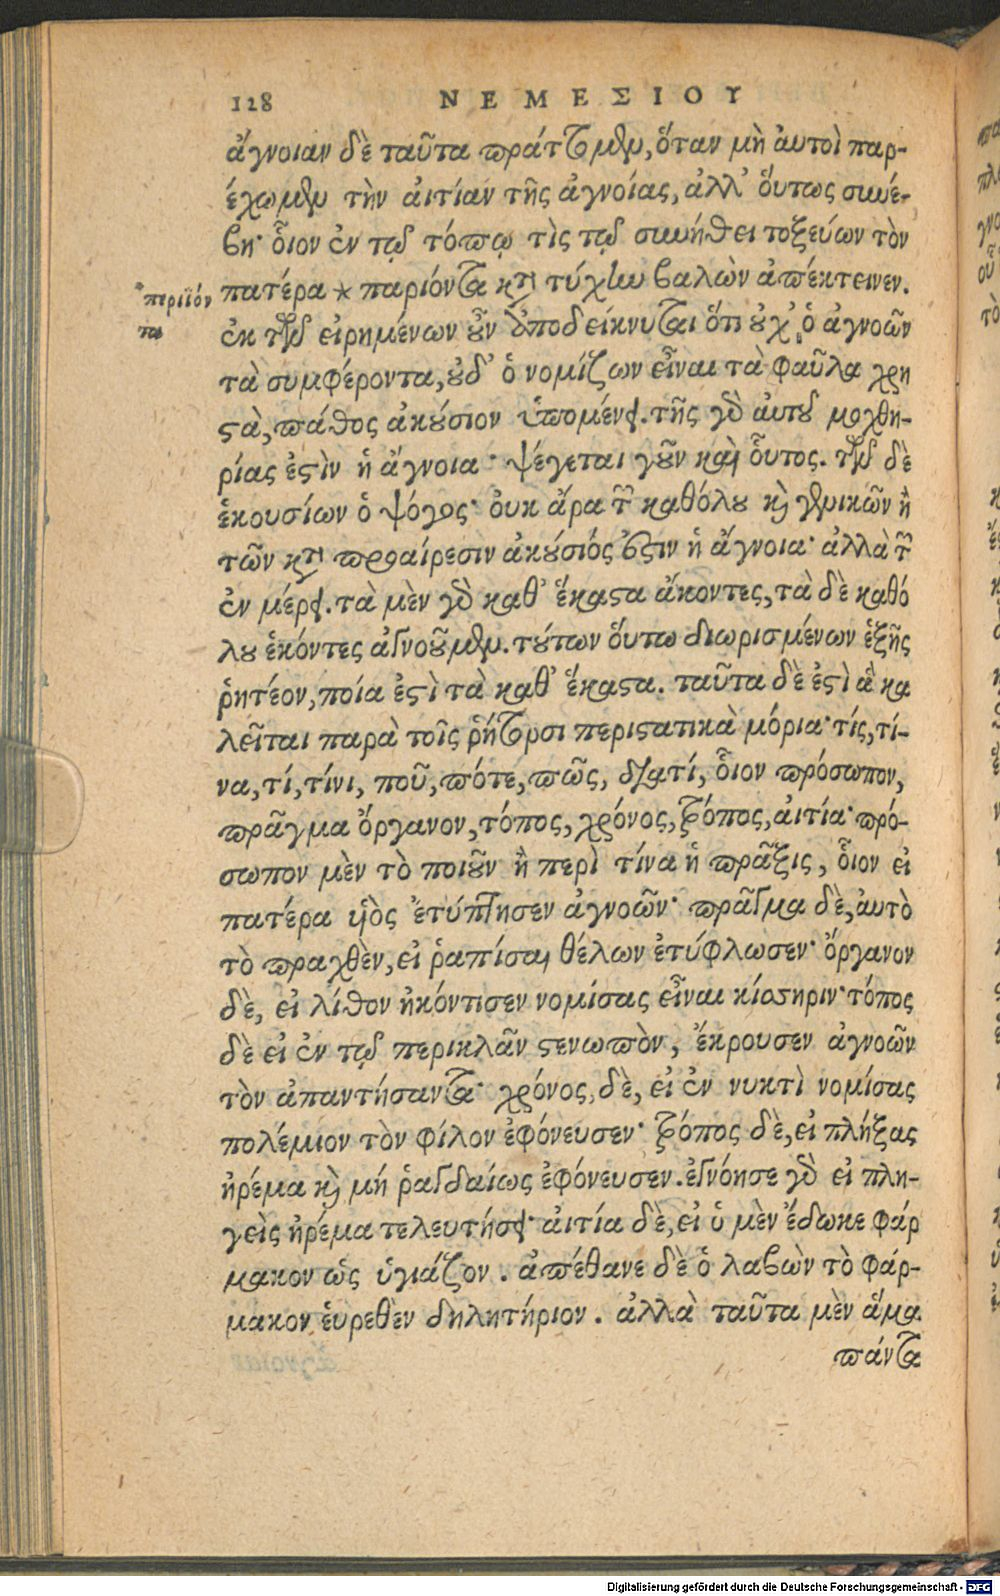 128 ΝΕΜΕΣΙΟΥ
ἄγνοιαν δὲ ταῦτα πράττομεν, ὅταν μὴ ἀυτοὶ παρ-
έχωμεν τὴν ἀιτίαν τῆς ἀγνοίας, ἀλλ' ὅυτως συνέ-
βη· ὃιον ἐν τῷ τόπῳ τὶς τῷ συνήθει τοξεύων τὸν
πατέρα * παριόντα κατὰ τύχην βαλὼν ἀπέκτεινεν.
*περιϊόν
τα
ἐκ τῶν εἰρημένων οὖν ὑποδείκνυται ὅτι οὐχ' ὁ ἀγνοῶν
τὰ συμφέροντα, οὐδ' ὁ νομίζων εἶναι τὰ φαῦλα χρη
στὰ, πάθος ἀκούσιον ὑπομένει. τῆς γὰρ ἀυτοῦ μοχθη-
ρίας ἐστὶν ἡ ἄγνοια· ψέγεται γοῦν καὶ οὗτος. τῶν δὲ
ἑκουσίων ὁ ψόγος· ὀυκ ἄρα τῶν καθόλου καὶ γενικῶν ἢ
τῶν κατὰ προαίρεσιν ἀκούσιός ἐστιν ἡ ἄγνοια· ἀλλὰ τῶν
ἐν μέρει. τὰ μὲν γὰρ καθ' ἕκαστα ἄκοντες, τὰ δὲ καθό
λου ἑκόντες ἀγνοοῦμεν. τούτων ὅυτω διωρισμένων ἑξῆς
ῥητέον, ποία ἐστὶ τὰ καθ' ἕκαστα. ταῦτα δὲ ἐστὶ ἃ κα
λεῖται παρὰ τοῖς ῥήτορσι περιστατικὰ μόρια· τίς, τί-
να, τί, τίνι, ποῦ, πότε, πῶς, διατί, ὃιον πρόσωπον,
πρᾶγμα ὄργανον, τόπος, χρόνος, τρόπος, ἀιτία· πρό-
σωπον μὲν τὸ ποιοῦν ἢ περὶ τίνα ἡ πρᾶξις, ὃιον εἰ
πατέρα υἱὸς ἐτύπτησεν ἀγνοῶν· πρᾶγμα δὲ, ἀυτὸ
τὸ πραχθὲν, εἰ ῥαπίσαι θέλων ἐτύφλωσεν· ὄργανον
δὲ, εἰ λίθον ἠκόντισεν νομίσας εἶναι κίσσηριν· τόπος
δὲ εἰ ἐν τῷ περικλᾶν στενωπὸν, ἔκρουσεν ἀγνοῶν
τὸν ἀπαντήσαντα· χρόνος, δὲ, εἰ ἐν νυκτὶ νομίσας
πολέμιον τὸν φίλον ἐφόνευσεν· τρόπος δὲ, εἰ πλήξας
ἠρέμα καὶ μή ῥαγδαίως ἐφόνευσεν. ἐγνόησε γὰρ εἰ πλη-
γεὶς ἠρέμα τελευτήσει· ἀιτία δὲ, εἰ ὁ μὲν ἔδωκε φάρ
μακον ὡς ὑγιάζον. ἀπέθανε δὲ ὁ λαβὼν τὸ φάρ-
μακον ἑυρεθὲν δηλητήριον. ἀλλὰ ταῦτα μὲν ἅμα
πάντα
Digitalisierung gefördert durch die Deutsche Forschungsgemeinschaft - DFG